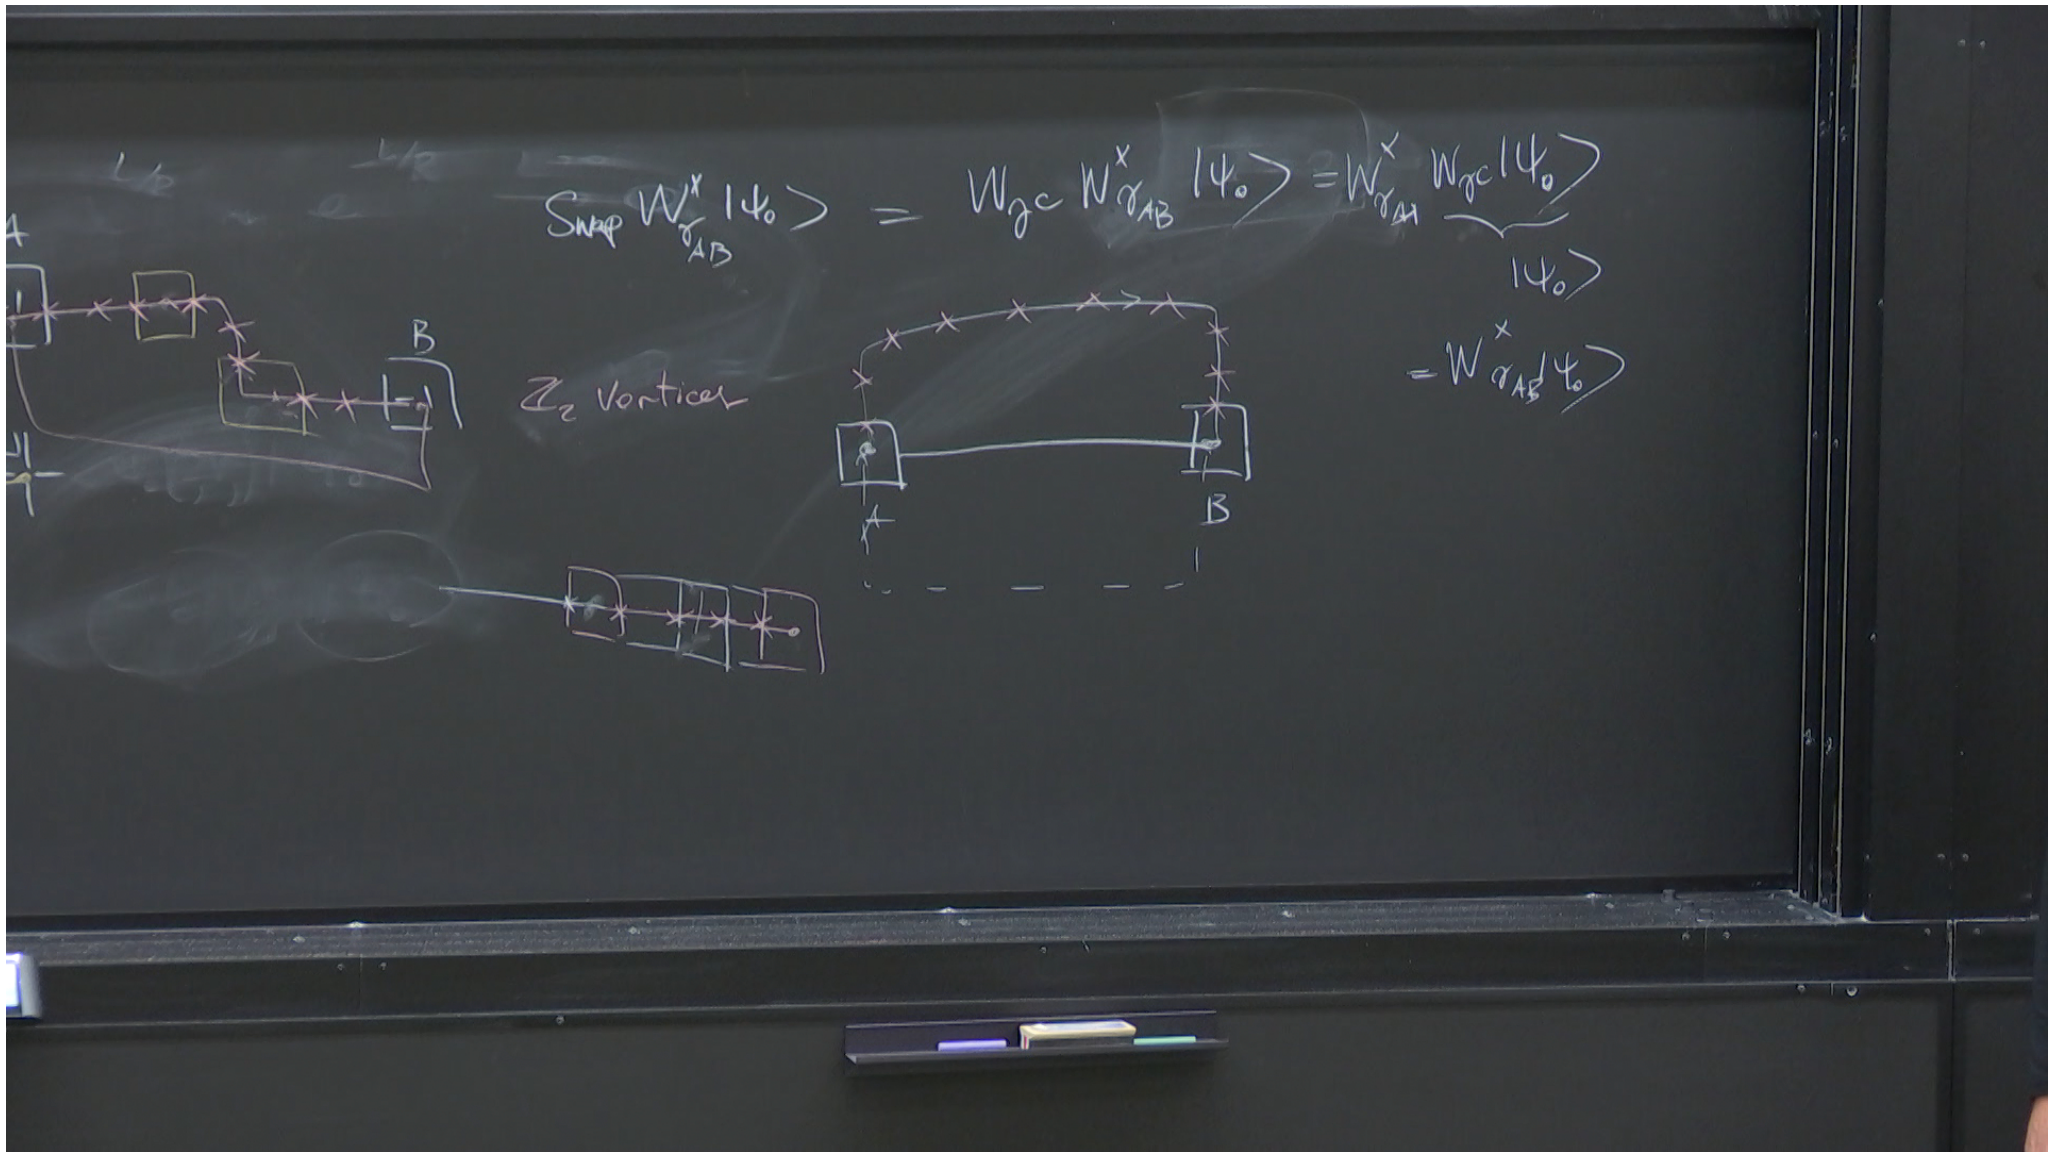 Swap W^x_{γ_{AB}} |ψ₀⟩ = W_{γc} W^x_{γ_{AB}} |ψ₀⟩ = W^x_{γ} W_{γc} |ψ₀⟩
|ψ₀⟩
= W^x_{γ_{AB}} |ψ₀⟩
A
B
ℤ₂ vortices
A
B